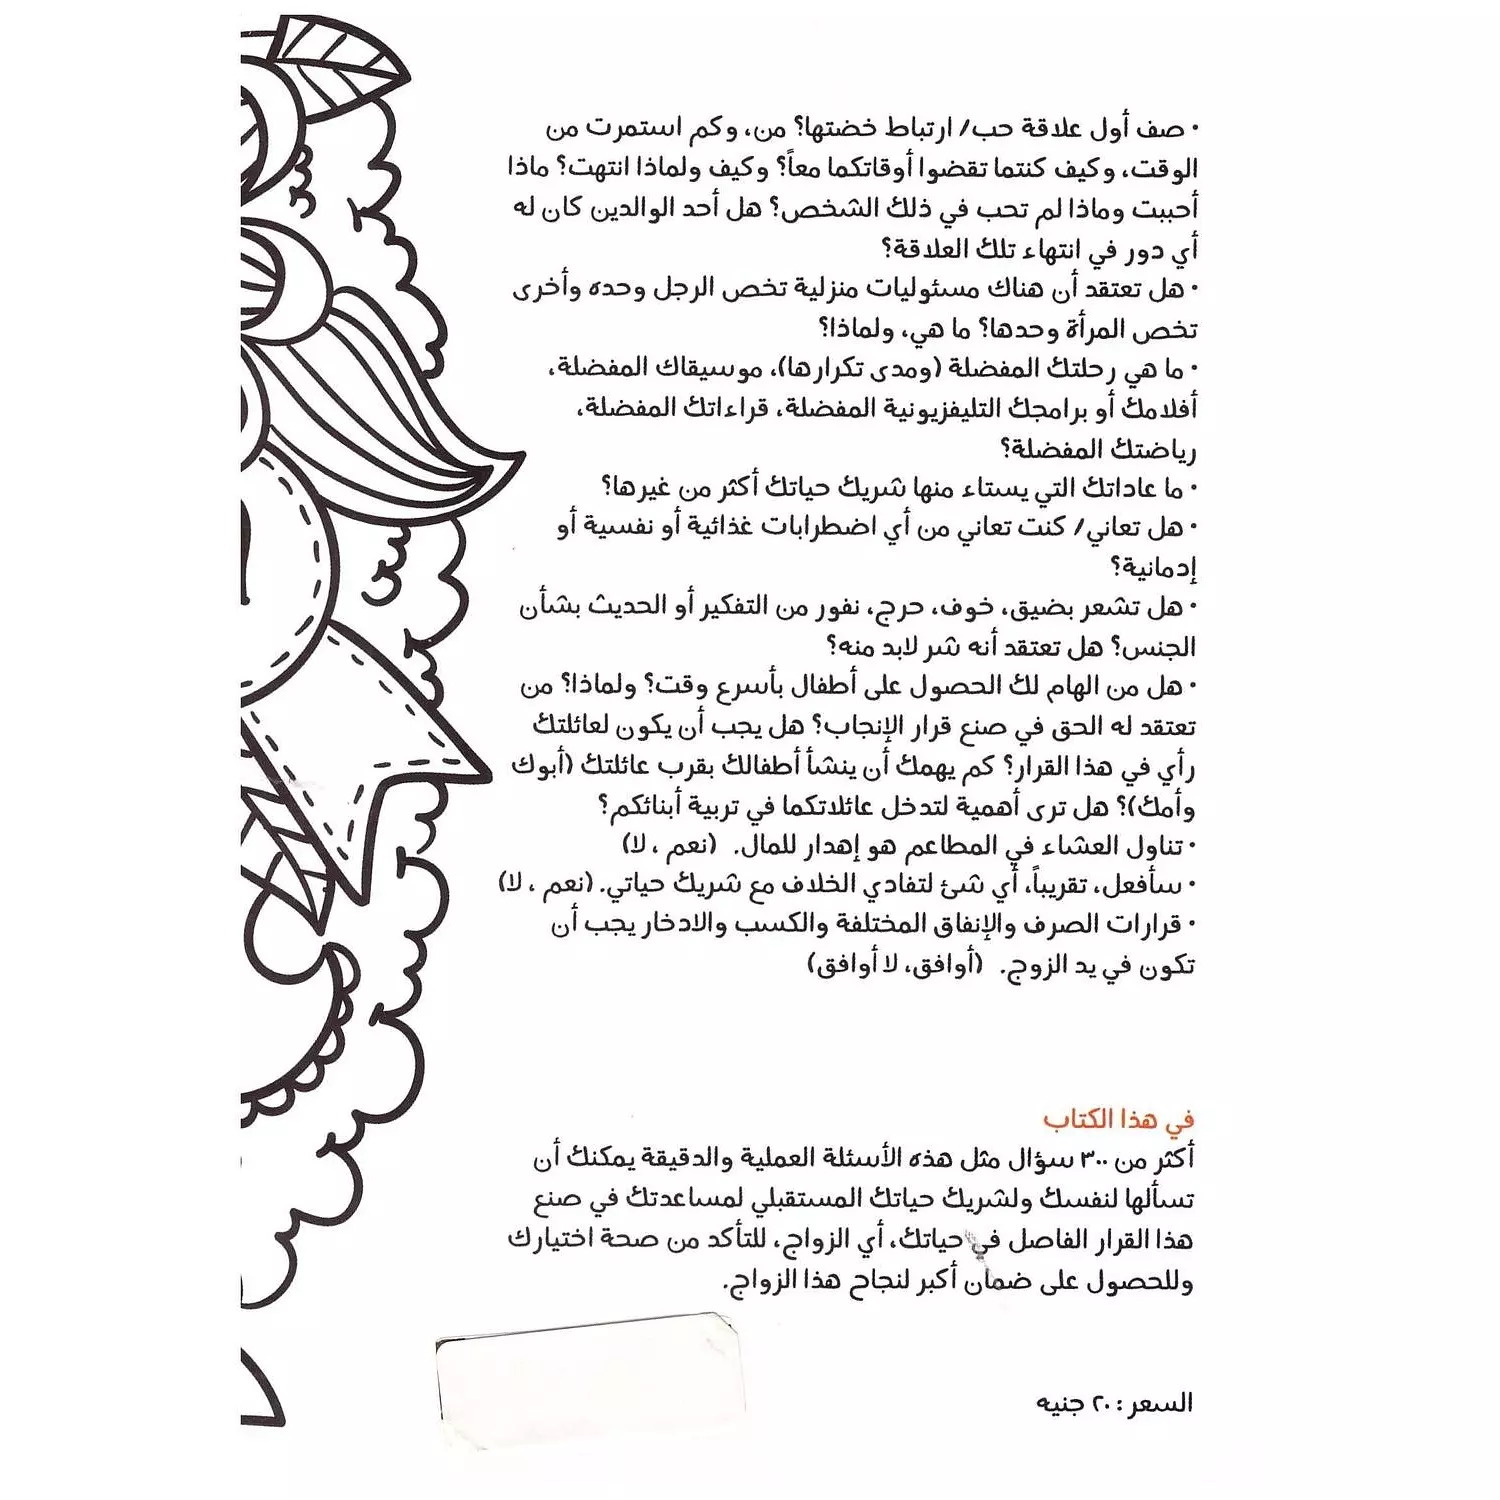 • صف أول علاقة حب/ ارتباط خضتها؟ من، وكم استمرت من
الوقت، وكيف كنتما تقضوا أوقاتكما معاً؟ وكيف ولماذا انتهت؟ ماذا
أحببت وماذا لم تحب في ذلك الشخص؟ هل أحد الوالدين كان له
أي دور في انتهاء تلك العلاقة؟
• هل تعتقد أن هناك مسئوليات منزلية تخص الرجل وحده وأخرى
تخص المرأة وحدها؟ ما هي، ولماذا؟
• ما هي رحلتك المفضلة (ومدى تكرارها)، موسيقاك المفضلة،
أفلامك أو برامجك التليفزيونية المفضلة، قراءاتك المفضلة،
رياضتك المفضلة؟
• ما عاداتك التي يستاء منها شريك حياتك أكثر من غيرها؟
• هل تعاني/ كنت تعاني من أي اضطرابات غذائية أو نفسية أو
إدمانية؟
• هل تشعر بضيق، خوف، حرج، نفور من التفكير أو الحديث بشأن
الجنس؟ هل تعتقد أنه شر لابد منه؟
• هل من الهام لك الحصول على أطفال بأسرع وقت؟ ولماذا؟ من
تعتقد له الحق في صنع قرار الإنجاب؟ هل يجب أن يكون لعائلتك
رأي في هذا القرار؟ كم يهمك أن ينشأ أطفالك بقرب عائلتك (أبوك
وأمك)؟ هل ترى أهمية لتدخل عائلاتكما في تربية أبنائكم؟
• تناول العشاء في المطاعم هو إهدار للمال. (نعم ، لا)
• سأفعل، تقريباً، أي شئ لتفادي الخلاف مع شريك حياتي. (نعم ، لا)
• قرارات الصرف والإنفاق المختلفة والكسب والادخار يجب أن
تكون في يد الزوج. (أوافق، لا أوافق)
في هذا الكتاب
أكثر من ٣٠٠ سؤال مثل هذه الأسئلة العملية والدقيقة يمكنك أن
تسألها لنفسك ولشريك حياتك المستقبلي لمساعدتك في صنع
هذا القرار الفاصل في حياتك، أي الزواج، للتأكد من صحة اختيارك
وللحصول على ضمان أكبر لنجاح هذا الزواج.
السعر : ٢٠ جنيه